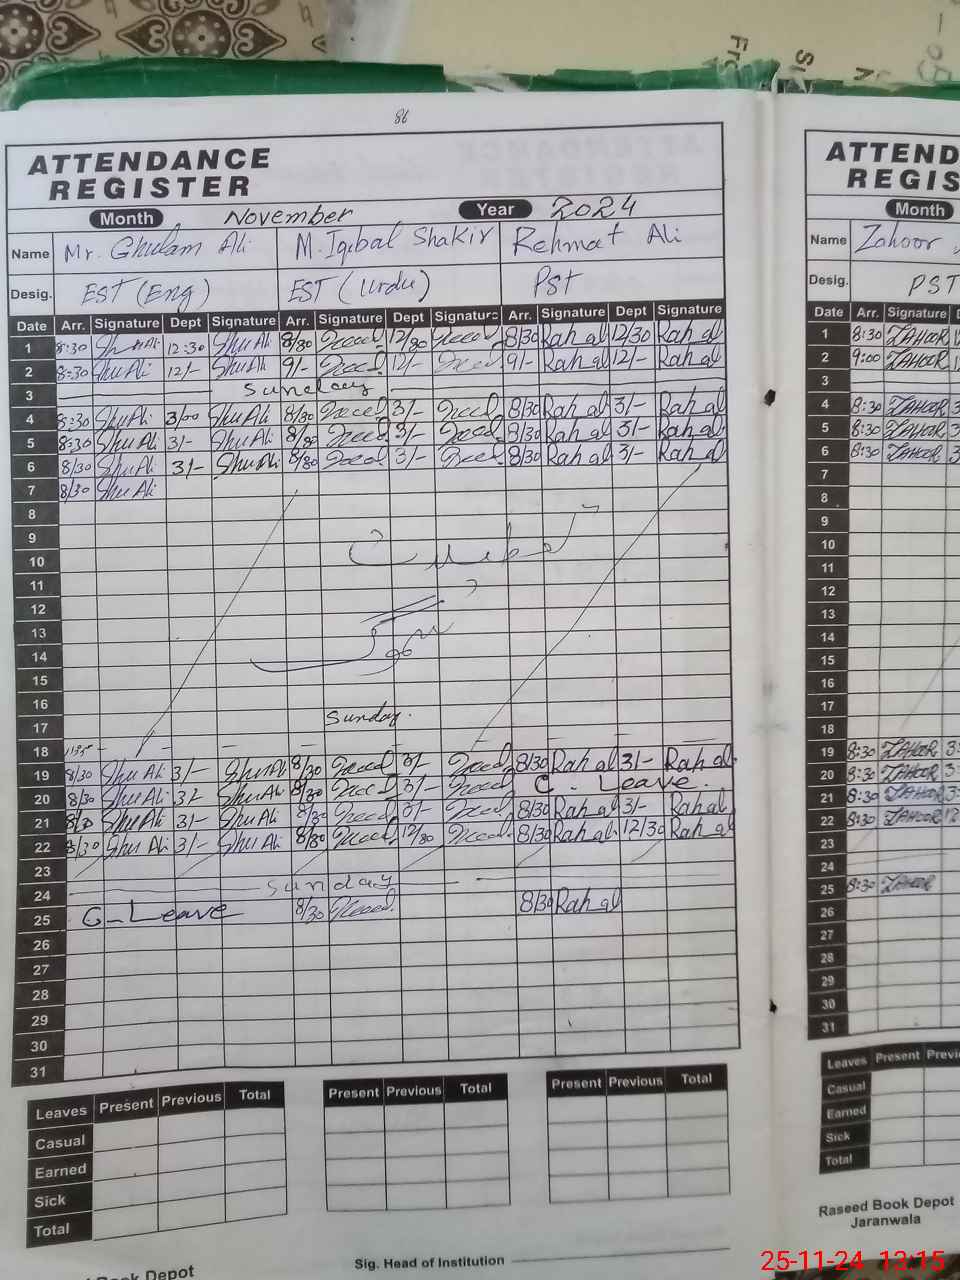 86
ATTENDANCE
REGISTER
Month November Year 2024
Name Mr. Ghulam Ali M. Iqbal Shakir Rehmat Ali
Desig. EST (Eng) EST (Urdu) PST
Date Arr. Signature Dept Signature Arr. Signature Dept Signature Arr. Signature Dept Signature
1 8:30 Ghu Ali 12:30 Ghu Ali 8/30 12/30 8/30 Rah al 12/30 Rah al
2 8:30 Ghu Ali 12/- Ghu Ali 9/- 12/- 9/- Rah al 12/- Rah al
3 Sunday
4 8:30 Ghu Ali 3/00 Ghu Ali 8/30 3/- 8/30 Rah al 3/- Rah al
5 8:30 Ghu Ali 3/- Ghu Ali 8/30 3/- 8/30 Rah al 3/- Rah al
6 8/30 Ghu Ali 3/- Ghu Ali 8/30 3/- 8/30 Rah al 3/- Rah al
7 8/30 Ghu Ali
8
9
10
11
12
13
14
15
16
17 Sunday
18
19 8/30 Ghu Ali 3/- Ghu Ali 8/30 3/- 8/30 Rah al 3/- Rah al
20 8/30 Ghu Ali 3/- Ghu Ali 8/30 3/- C. Leave.
21 8/30 Ghu Ali 3/- Ghu Ali 8/30 3/- 8/30 Rah al 3/- Rah al
22 8/30 Ghu Ali 3/- Ghu Ali 8/30 12/30 8/30 Rah al 12/30 Rah al
23
24 Sunday
25 C-Leave 8/30 8/30 Rah al
26
27
28
29
30
31
Leaves Present Previous Total Present Previous Total Present Previous Total
Casual
Earned
Sick
Total
Book Depot
Sig. Head of Institution
ATTEND
REGIS
Month
Name Zahoor
Desig. PST
Date Arr. Signature
1 8:30 ZAHOOR
2 9:00 ZAHOOR
3
4 8:30 ZAHOOR 3
5 8:30 ZAHOOR 3
6 8:30 ZAHOOR 3
7
8
9
10
11
12
13
14
15
16
17
18
19 8:30 ZAHOOR 3
20 8:30 ZAHOOR 3
21 8:30 ZAHOOR 3
22 8:30 ZAHOOR 12
23
24
25 8:30 ZAHOOR
26
27
28
29
30
31
Leaves Present Previ
Casual
Earned
Sick
Total
Raseed Book Depot
Jaranwala
25-11-24 13:15